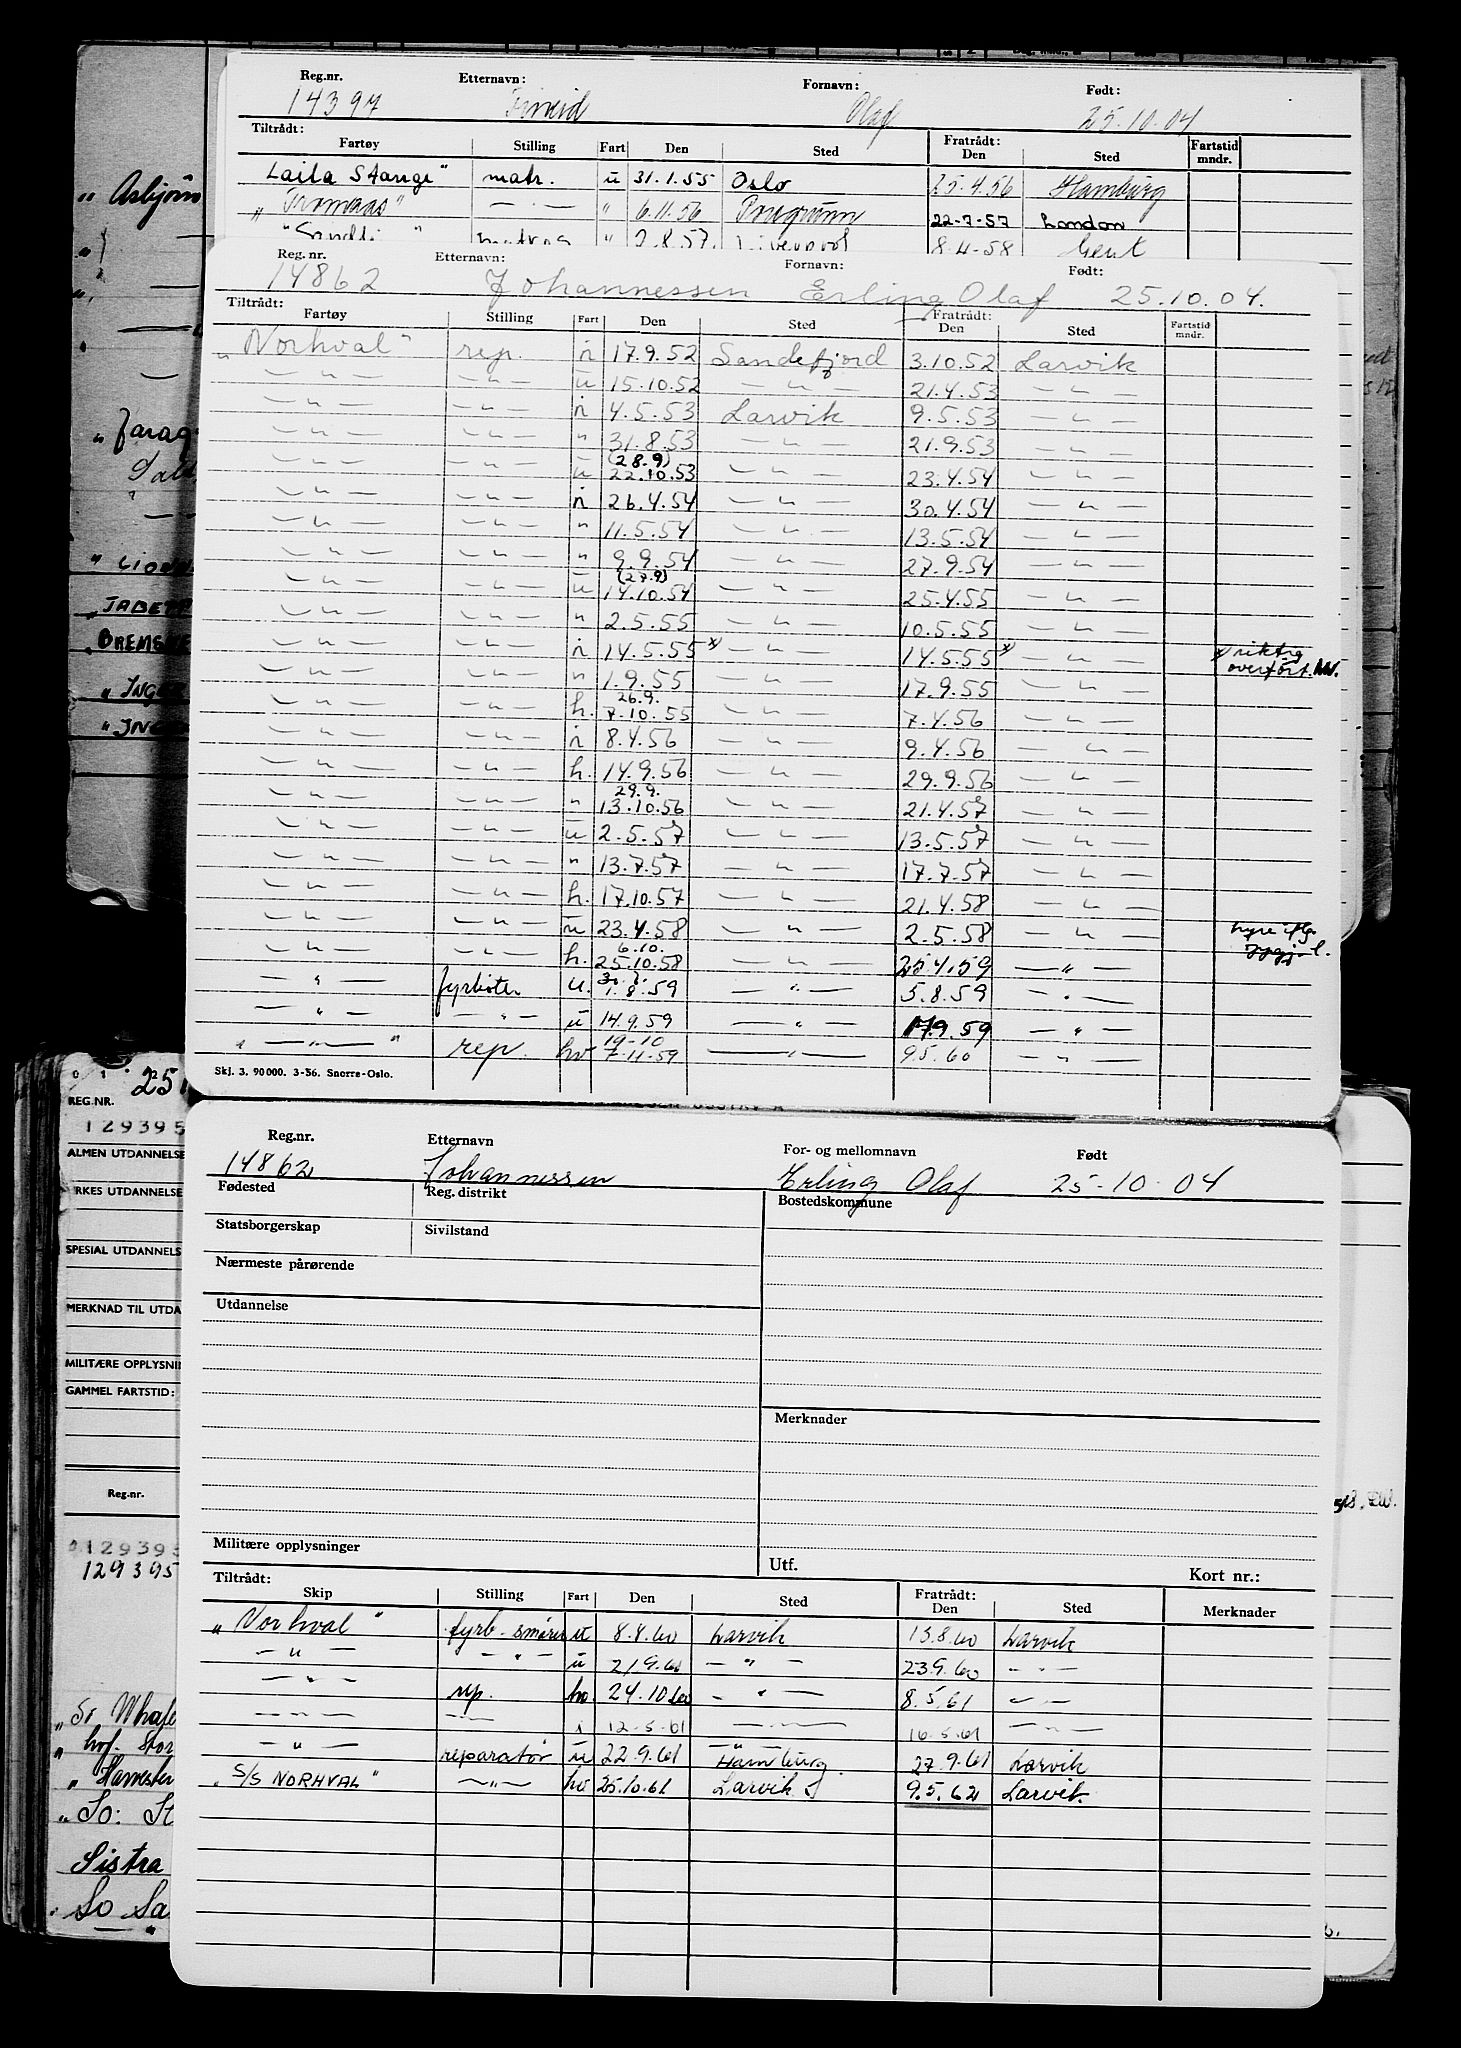 Reg.nr. Etternavn: Fornavn: Født:
14397 Olaf 25.10.04
Tiltrådt: Fratrådt:
Fartøy Stilling Fart Den Sted Den Sted Fartstid mndr.
Laila Stange" matr. u 31.1.55 Oslo 25.4.56 Hamburg
"Tromaas" — " — " 6.11.56 Porsgrunn 22-7-57 London
" 2.8.57 Liverpool 8.4.58 Gent
Reg. nr. Etternavn: Fornavn: Født:
14862 Johannessen Erling Olaf 25.10.04.
Tiltrådt: Fratrådt:
Fartøy Stilling Fart Den Sted Den Sted Fartstid mndr.
"Norhval" rep. i 17.9.52 Sandefjord 3.10.52 Larvik
— " — — " — u 15.10.52 — " — 21.4.53 — " —
— " — — " — i 4.5.53 Larvik 9.5.53 — " —
— " — — " — " 31.8.53 — " — 21.9.53 — " —
(28.9)
— " — — " — u 22.10.53 — " — 23.4.54 — " —
— " — — " — i 26.4.54 — " — 30.4.54 — " —
— " — — " — " 11.5.54 — " — 13.5.54 — " —
— " — — " — " 9.9.54 — " — 27.9.54 — " —
(27.9)
— " — — " — u 14.10.54 — " — 25.4.55 — " —
— " — — " — " 2.5.55 — " — 10.5.55 — " —
— " — — " — i 14.5.55 x) — " — 14.5.55 x) — " — x riktig
overført.
— " — — " — " 1.9.55 — " — 17.9.55 — " —
26.9.
— " — — " — h. 7.10.55 — " — 7.4.56 — " —
— " — — " — i 8.4.56 — " — 9.4.56 — " —
— " — — " — h. 14.9.56 — " — 29.9.56 — " —
29.9.
— " — — " — " 13.10.56 — " — 21.4.57 — " —
— " — — " — u 2.5.57 — " — 13.5.57 — " —
— " — — " — " 13.7.57 — " — 17.7.57 — " —
— " — — " — h. 17.10.57 — " — 21.4.58 — " —
— " — — " — u 23.4.58 — " — 2.5.58 — " —
6.10.
— " — — " — h. 25.10.58 — " — 25.4.59 — " —
— " — fyrbøter u. 1.8.59 — " — 5.8.59 — " —
— " — — " — u 14.9.59 — " — 17.9.59 — " —
19-10
" — " — " rep. hv 7-11-59 — " — 9.5.60 — " —
Skj. 3. 90000. 3-56. Snorre-Oslo.
Reg.nr. Etternavn For- og mellomnavn Født
14862 Johannessen Erling Olaf 25-10-04
Fødested Reg. distrikt Bostedskommune
Statsborgerskap Sivilstand
Nærmeste pårørende
Utdannelse
Merknader
Militære opplysninger Utf. Kort nr.:
Tiltrådt: Fratrådt:
Skip Stilling Fart Den Sted Den Sted Merknader
"Norhval" fyrb-smører u 8.8.60 Larvik 13.8.60 Larvik
— " — — " — u 21.9.60 — " — 23.9.60 — " —
— " — rep. hv. 24.10.60 — " — 8.5.61 — " —
— " — — " — i 12-5-61 — " — 16-5-61 — " —
— " — reparatør u 22.9.61 Hamburg. 27.9.61 Larvik
"S/S NORHVAL" — " — hv 25.10.61 Larvik 9.5.62 Larvik.
" Asbjørn
" LIONN
"JADE
"BREMS
" INGE
" ING
REG.NR.
129395
ALMEN UTDANNELSE
YRKES UTDANNELSE
SPESIAL UTDANNELS
MERKNAD TIL UTDA
MILITÆRE OPPLYSNI
GAMMEL FARTSTID:
Reg.nr.
129395
"So Whale
" hvf. Stor
" Harvester
"So: St
Sistra
So Sa